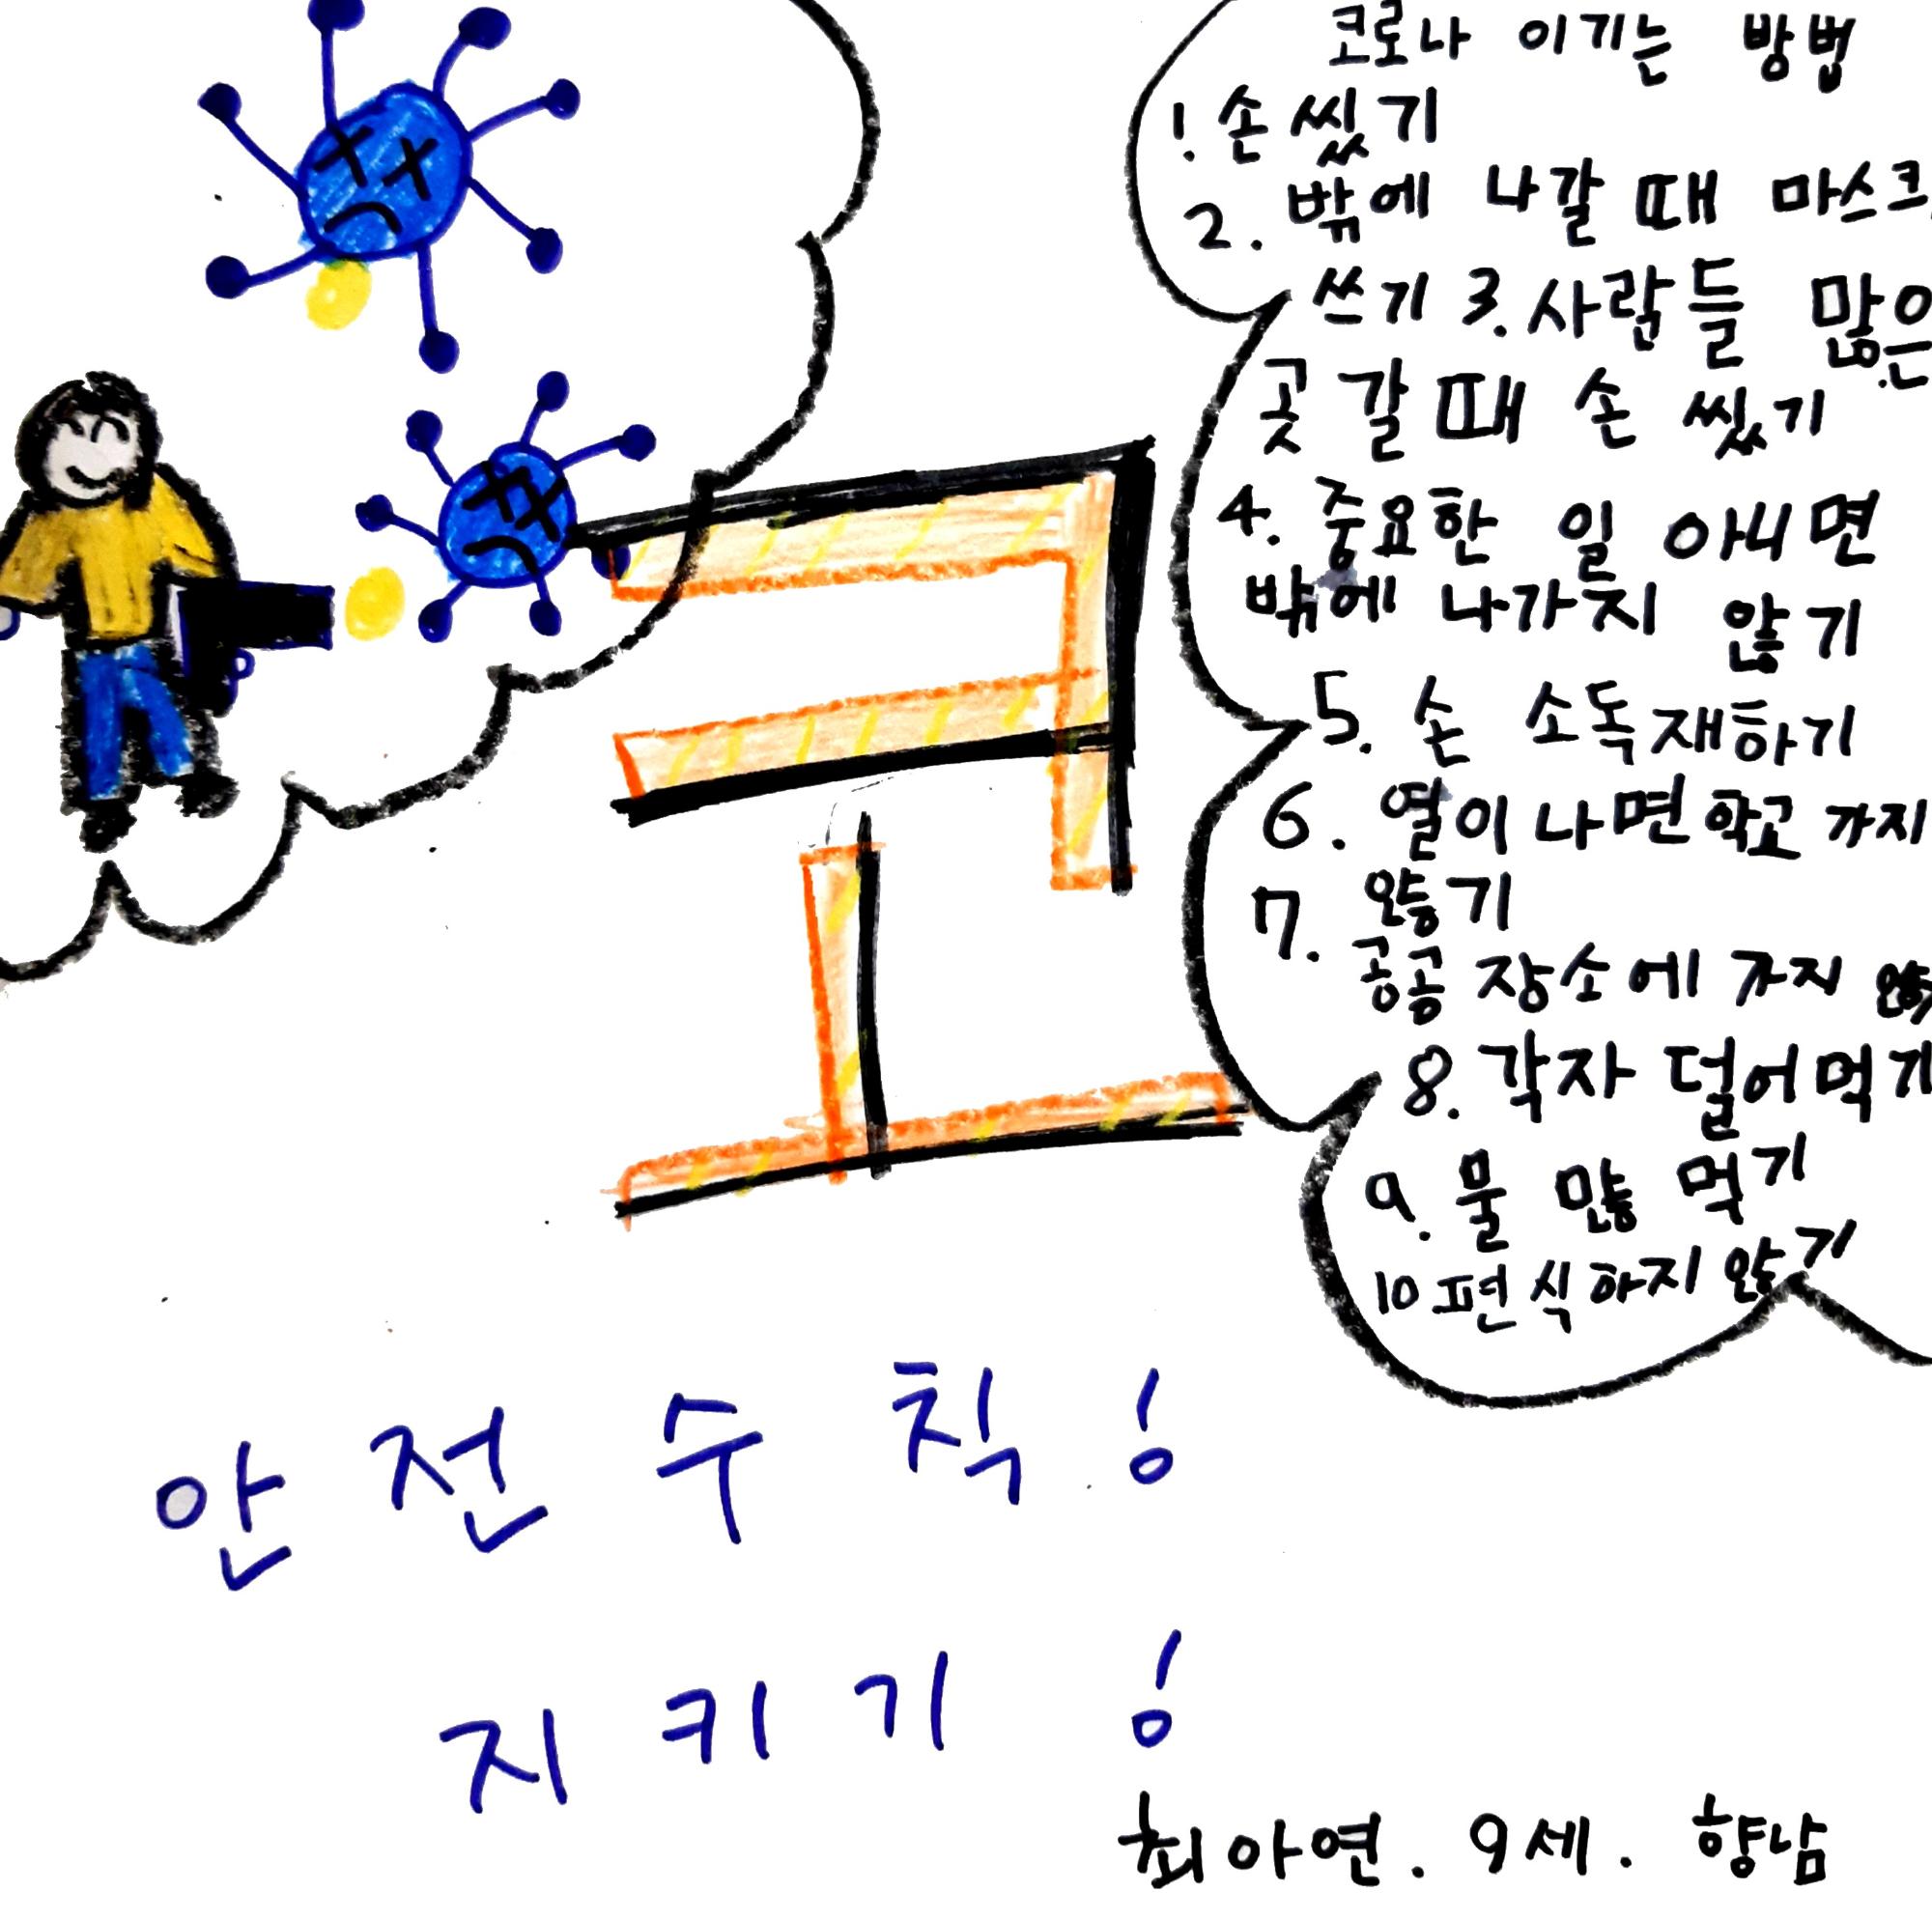 코
코로나 이기는 방법
1. 손 씼기
2. 밖에 나갈 때 마스크
쓰기 3. 사람들 많은
곳 갈 때 손 씼기
4. 중요한 일 아니면
밖에 나가지 않기
5. 손 소독재하기
6. 열이 나면 학교 가지
않기
7. 공공 장소에 가지 않
8. 각자 덜어먹기
9. 물 많 먹기
10 편식하지 않기
안전수칙!
지키기!
최아연. 9세. 향남